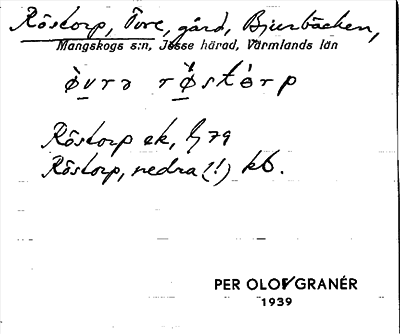 Röstorp, Övre, gård, Bjurbäcken,
Mangskogs s:n, Jösse härad, Värmlands län
Röstorp ek, 79
Röstorp, nedra (!) kb.
PER OLOF GRANÉR
1939